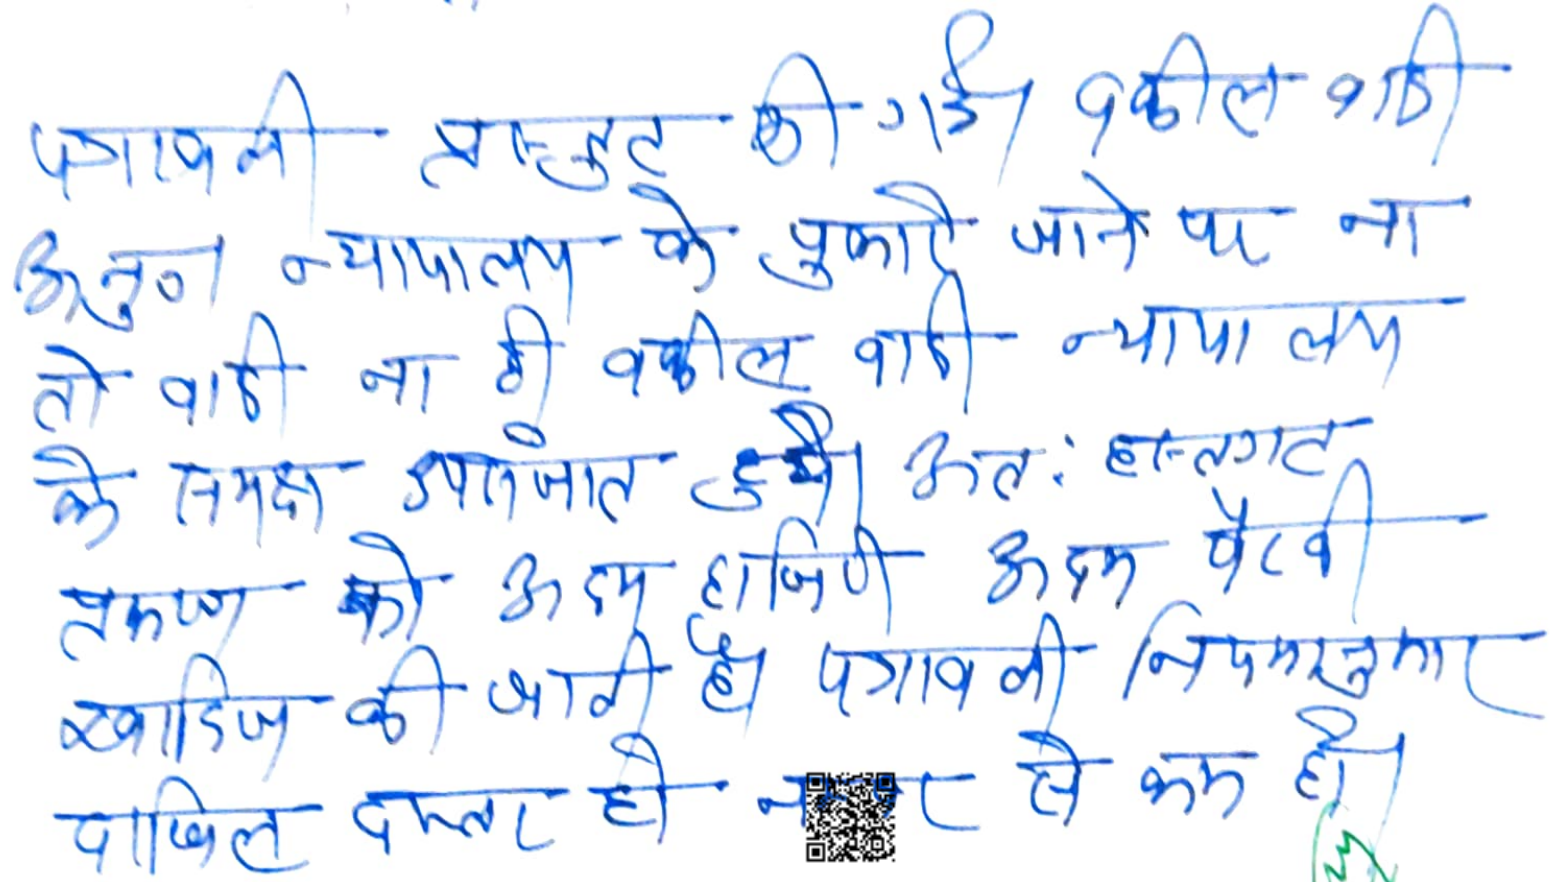 पत्रावली प्रस्तुत की गई। वकील वादी
न्यायालय के पुकारे जाने पर ना
तो वादी ना ही वकील वादी न्यायालय
के समक्ष उपस्थित हुये। अत: हस्तगत
प्रकरण को अदम हाजिरी अदम पैरवी
खारिज की जाती है। पत्रावली नियमानुसार
दाखिल दफ्तर हो से कम हो।